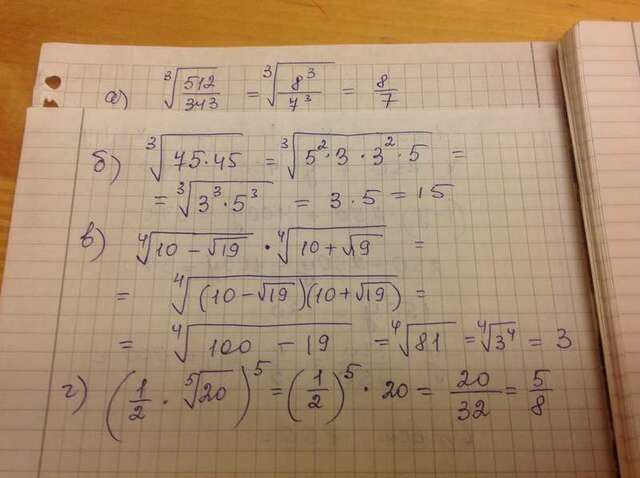 а) ∛(512/343) = ∛(8³/7³) = 8/7
б) ∛(75·45) = ∛(5²·3·3²·5) =
= ∛(3³·5³) = 3·5 = 15
в) ∜(10 − √19) · ∜(10 + √19) =
= ∜((10 − √19)(10 + √19)) =
= ∜(100 − 19) = ∜81 = ∜3⁴ = 3
г) (1/2 · ⁵√20)⁵ = (1/2)⁵ · 20 = 20/32 = 5/8